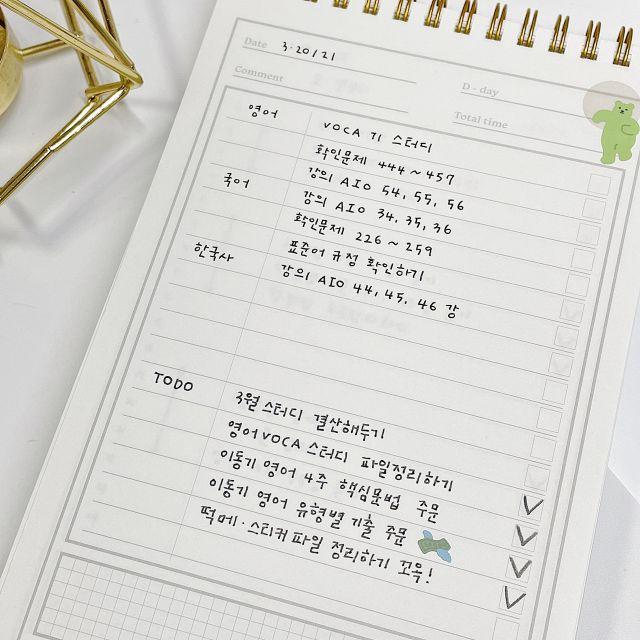 Date 3.20/21
Comment
D - day
Total time
영어 VOCA 기 스터디
확인문제 444 ~ 457
강의 AIO 54, 55, 56
국어 강의 AIO 34, 35, 36
확인문제 226 ~ 259
표준어 규정 확인하기
한국사 강의 AIO 44, 45, 46 강
TODO 3월 스터디 결산해두기
영어 VOCA 스터디 파일정리하기
이동기 영어 4주 핵심문법 주문
이동기 영어 유형별 기출 주문
떡메·스티커파일 정리하기 꼬옥!